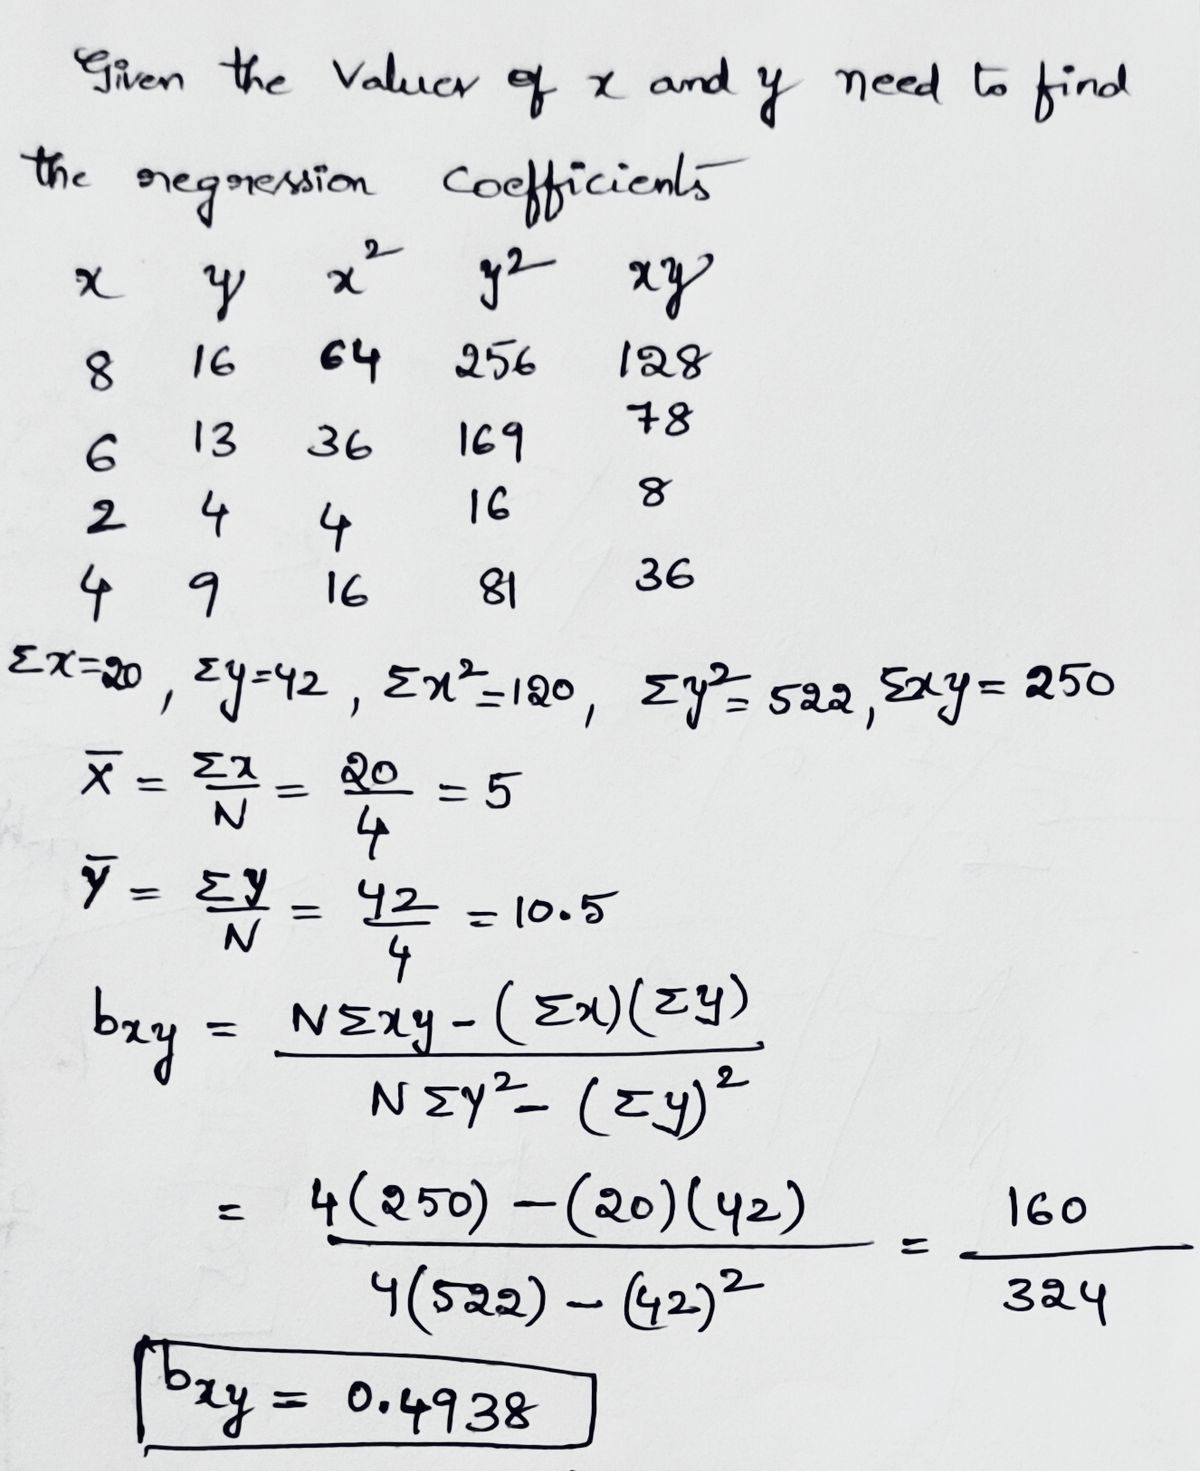 Given the Values of x and y need to find
the regression Coefficients
x y x² y² xy
8 16 64 256 128
6 13 36 169 78
2 4 4 16 8
4 9 16 81 36
Σx=20, Σy=42, Σx²=120, Σy²=522, Σxy=250
X̄ = Σx/N = 20/4 = 5
Ȳ = Σy/N = 42/4 = 10.5
bxy = NΣxy-(Σx)(Σy) / NΣy²-(Σy)²
= 4(250)-(20)(42) / 4(522)-(42)² = 160/324
bxy = 0.4938